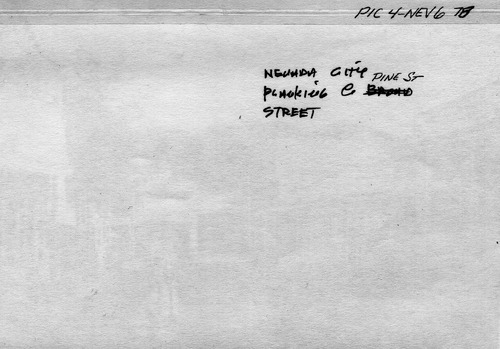 PIC 4-NEV6
NEVADA CITY PINE ST
@ BROAD
STREET